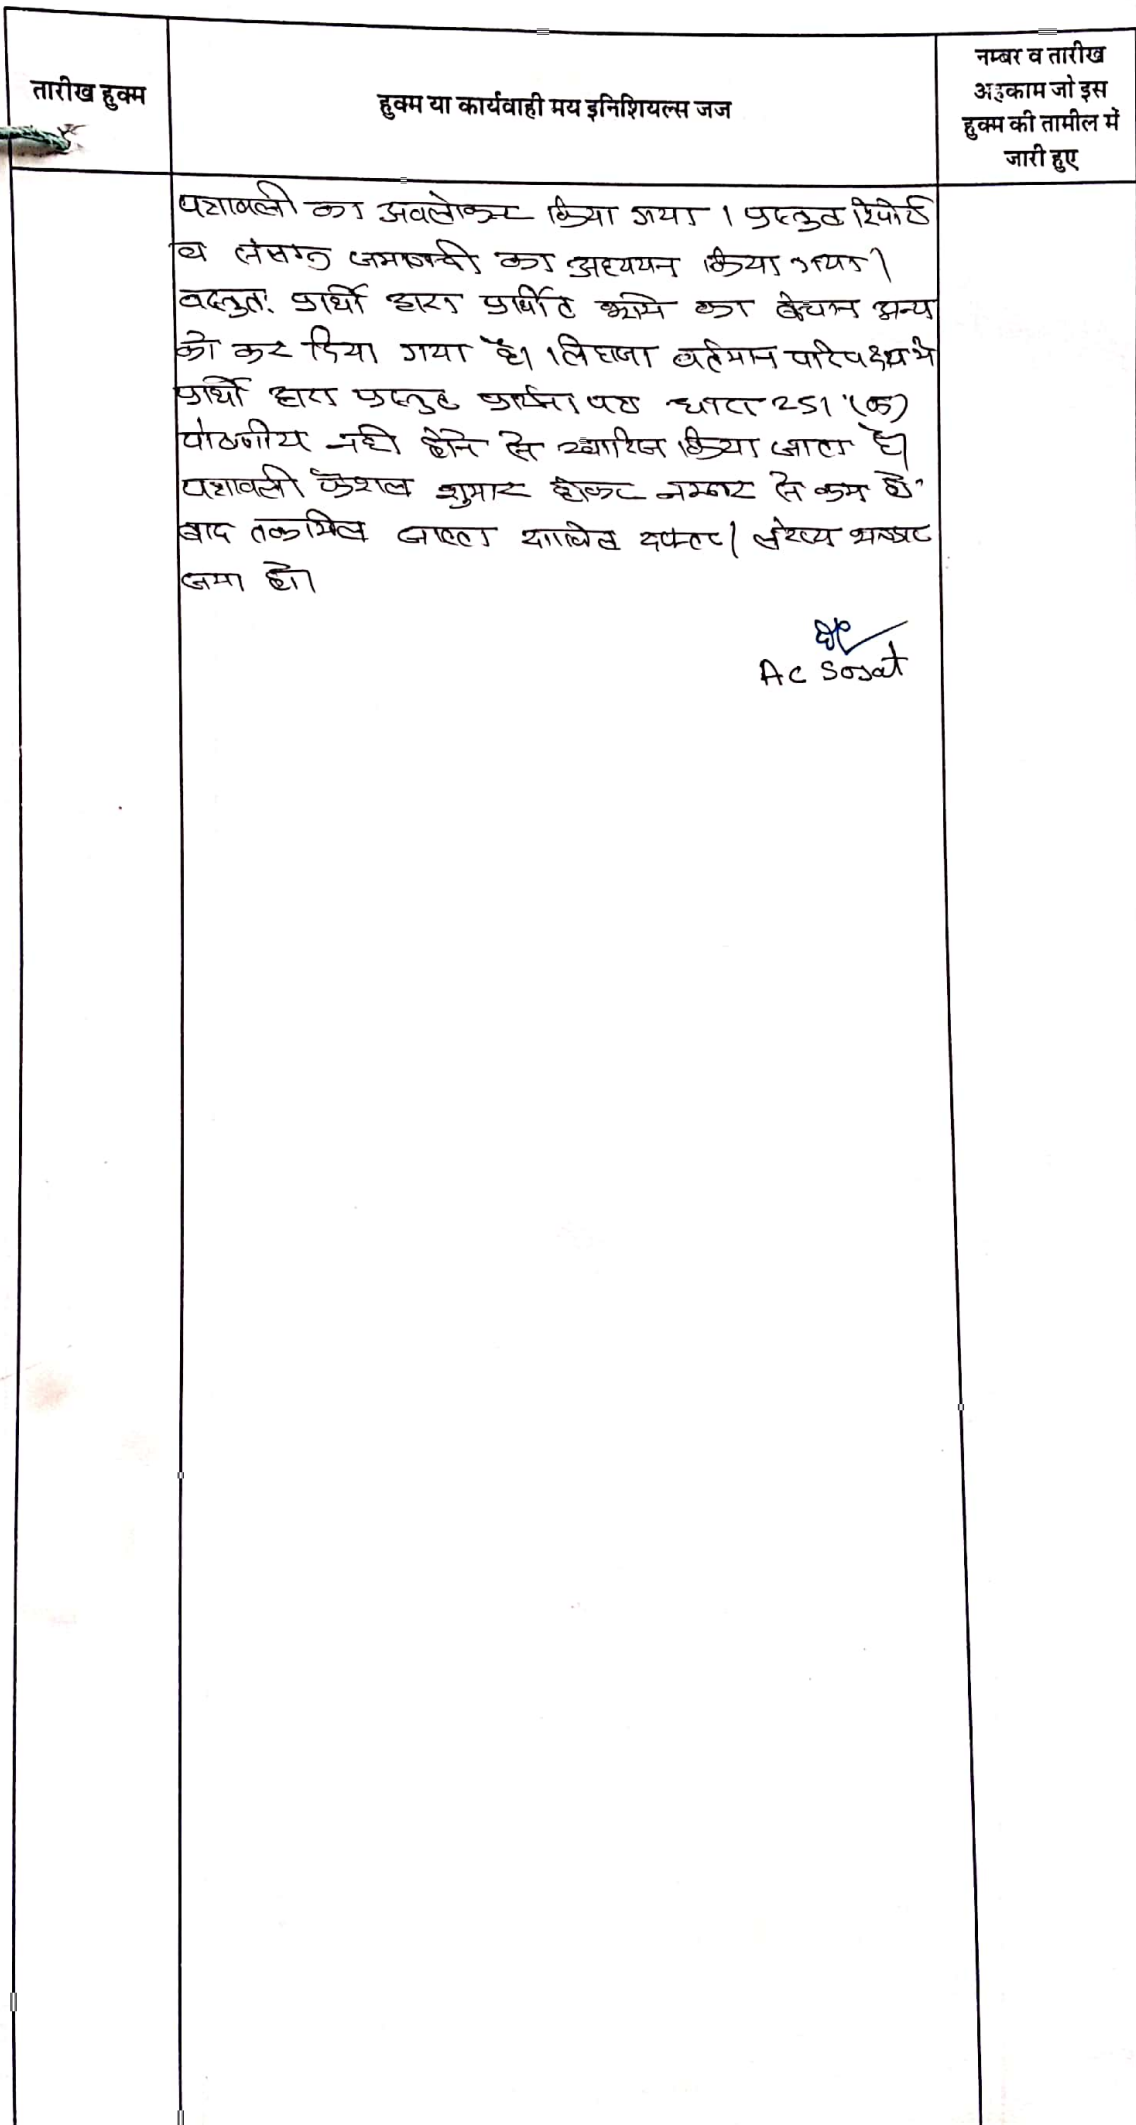 तारीख हुक्म
हुक्म या कार्यवाही मय इनिशियल्स जज
नम्बर व तारीख
अहकाम जो इस
हुक्म की तामील में
जारी हुए
पत्रावली का अवलोकन किया गया । प्रस्तुत रिपोर्ट
व संलग्न जमाबन्दी का अध्ययन किया गया।
वस्तुतः प्रार्थी द्वारा प्रार्थीत भूमि का बेचान अन्य
को कर दिया गया है। लिहाजा वर्तमान परिपेक्ष्य मे
प्रार्थी द्वारा प्रस्तुत प्रार्थना पत्र धारा 251 (क)
पोषणीय नही होने से खारिज किया जाता है।
पत्रावली फैशल शुमार होकर नम्बर से कम हो
बाद तकमिल जाप्ता दाखिल दफ्तर।
जमा हो।
AC Sojat